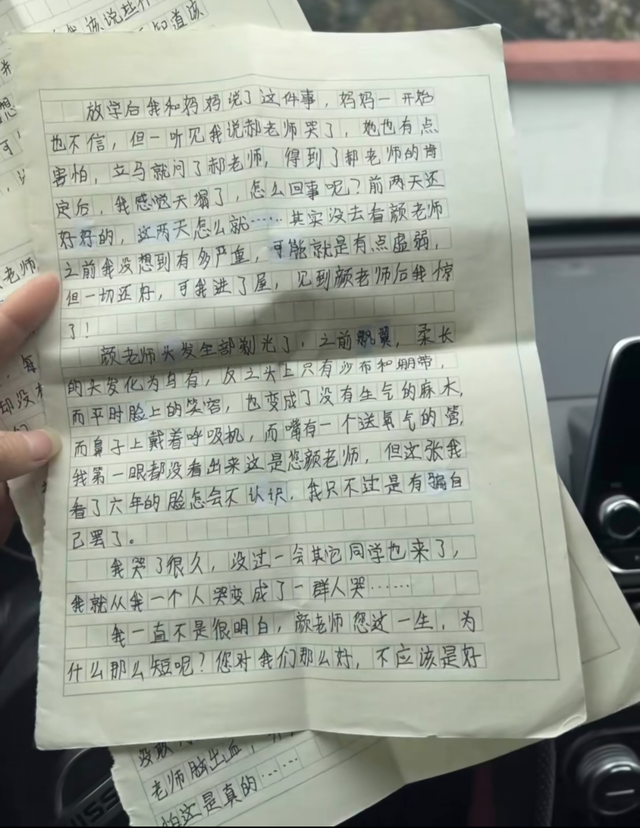 该说些什
知道该
想
可!
老师
每
却没
放学后我和妈妈说了这件事,妈妈一开始
也不信,但一听见我说郝老师哭了,她也有点
害怕,立马就问了郝老师,得到了郝老师的肯
定后,我感觉天塌了,怎么回事呢?前两天还
好好的,这两天怎么就……其实没去看颜老师
之前我没想到有多严重,可能就是有点虚弱,
但一切还好,可我进了屋,见到颜老师后我惊
了!
颜老师头发全部剃光了,之前飘翼,柔长
的头发化为乌有,反之头上只有沙布和绷带,
而平时脸上的笑容,也变成了没有生气的麻木,
而鼻子上戴着呼吸机,而嘴有一个送氧气的管,
我第一眼都没看出来这是您颜老师,但这张我
看了六年的脸怎会不认识,我只不过是有骗自
己罢了。
我哭了很久,没过一会其它同学也来了,
我就从我一个人哭变成了一群人哭……
我一直不是很明白,颜老师您过一生,为
什么那么短呢?您对我们那么好,不应该是好
老师脑出血
怕这是真的……